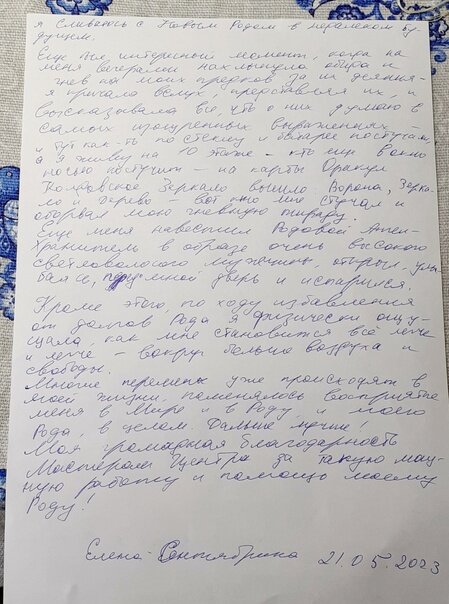 я сливаюсь с Новым Родом в далеком бу-
дущем.
Еще был интересный момент, когда на
меня вечерами нахлынула обида и
гнев на моих предков за их деяния -
я кричала вслух, представляя их, и
высказывала все, что о них думаю в
самых изощренных выражениях
и тут как-то по стеклу и батарее постучали,
а я живу на 10 этаже - кто еще в окно
ночью постучит - на карты Оракул
Колдовское Зеркало вышли Ворона, Зерка-
ло и Дерево - вот кто мне стучал и
оборвал мою гневную тираду.
Еще меня навестил Родовой Ангел-
Хранитель в образе очень высокого
светловолосого мужчины, открыл, улы-
баясь, мной дверь и испарился.
Кроме этого, по ходу избавления
от долгов Рода я физически ощу-
щала, как мне становится всё легче
и легче - вокруг больше воздуха и
свободы.
Многие перемены уже происходят в
моей жизни, поменялось восприятие
меня в Мире и в Роду, и моего
Рода, в целом. Дальше лучше!
Моя громадная благодарность
Мастерам Центра за такую мощ-
ную работу и помощь моему
Роду!
Елена Сентябрина 21.05.2023